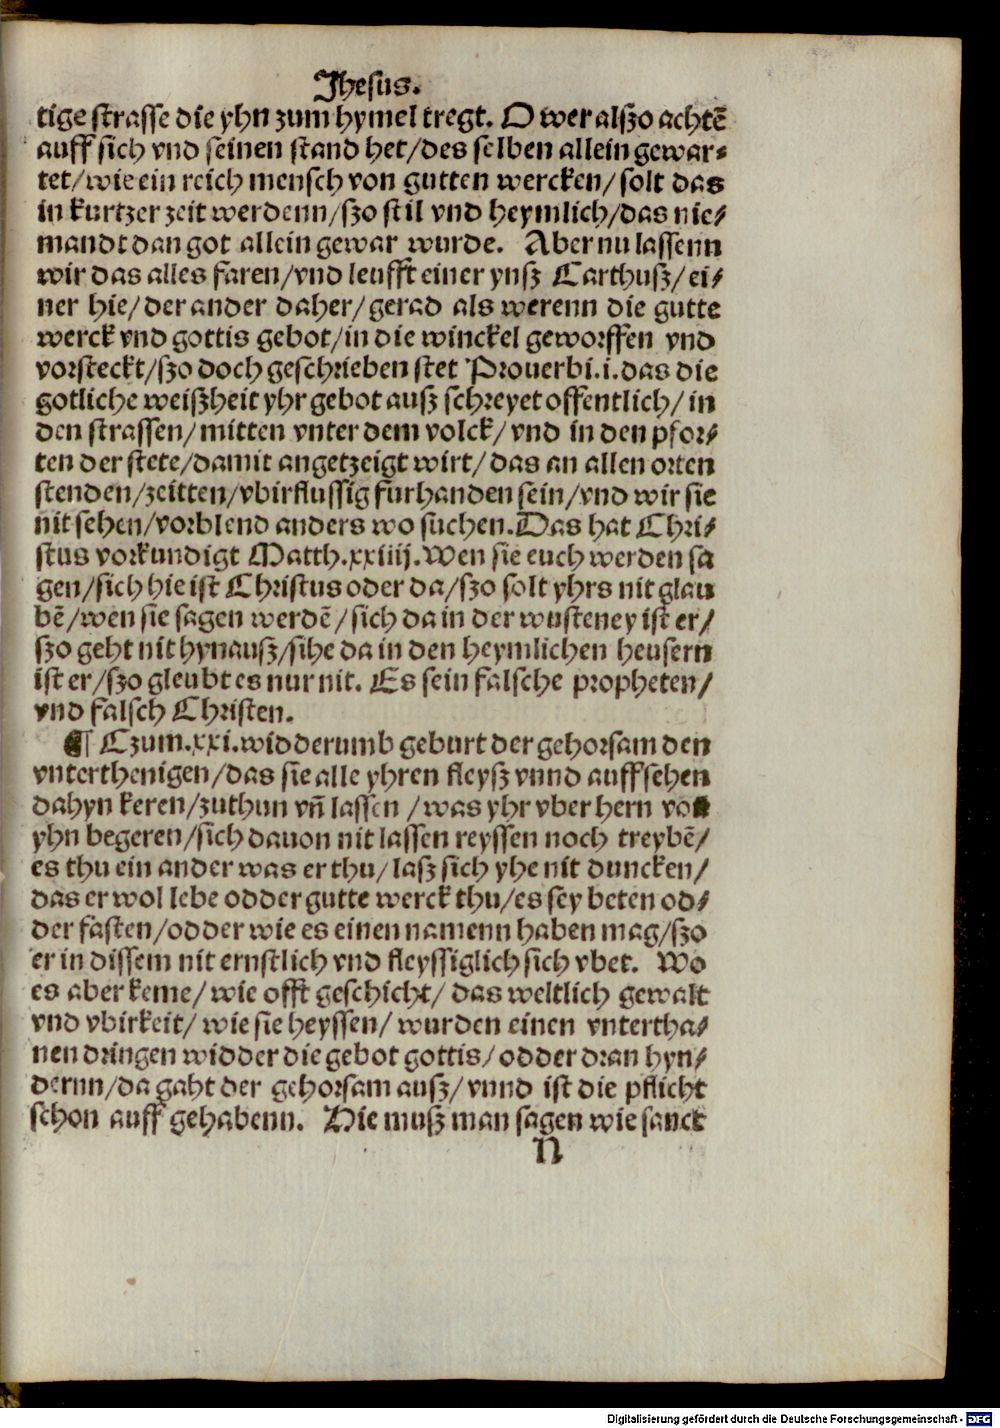 Jhesus.
tige strasse die yhn zum hymel tregt. O wer alßo achtē
auff sich vnd seinen stand het/des selben allein gewar-
tet/wie ein reich mensch von gutten wercken/ solt das
in kurtzer zeit werdenn/ßo stil vnd heymlich/das nie/
mandt dan got allein gewar wurde. Aber nu lassenn
wir das alles faren/vnd leufft einer ynß Carthuß/ei/
ner hie/der ander daher/gerad als werenn die gutte
werck vnd gottis gebot/in die winckel geworffen vnd
vorsteckt/ßo doch geschrieben stet Prouerbi.i.das die
gotliche weißheit yhr gebot auß schreyet offentlich/in
den strassen/mitten vnter dem volck/vnd in den pfor/
ten der stete/damit angetzeigt wirt/das an allen orten
stenden/zeitten/vbirflussig furhanden sein/vnd wir sie
nit sehen/vorblend anders wo suchen.Das hat Chri/
stus vorkundigt Matth.xxiiij.Wen sie euch werden sa
gen/sich hie ist Christus oder da/ßo solt yhrs nit glau
bē/wen sie sagen werdē/sich da in der wusteney ist er/
ßo geht nit hynauß/sihe da in den heymlichen heusern
ist er/ßo gleubt es nur nit. Es sein falsche propheten/
vnd falsch Christen.
¶ Czum.xxi.widderumb geburt der gehorsam den
vnterthenigen/das sie alle yhren fleysz vnnd auffsehen
dahyn keren/zuthun vñ lassen /was yhr vber hern vō
yhn begeren/sich dauon nit lassen reyssen noch treybē/
es thu ein ander was er thu/laß sich yhe nit duncken/
das er wol lebe odder gutte werck thu/es sey beten od/
der fasten/odder wie es einen namenn haben mag/ßo
er in dissem nit ernstlich vnd fleyssiglich sich vbet. Wo
es aber keme/wie offt geschicht/ das weltlich gewalt
vnd vbirkeit/ wie sie heyssen/ wurden einen vntertha/
nen dringen widder die gebot gottis/odder dran hyn/
dernn/da gaht der gehorsam auß/vnnd ist die pflicht
schon auff gehabenn. Hie muß man sagen wie sanct
N
Digitalisierung gefördert durch die Deutsche Forschungsgemeinschaft - DFG